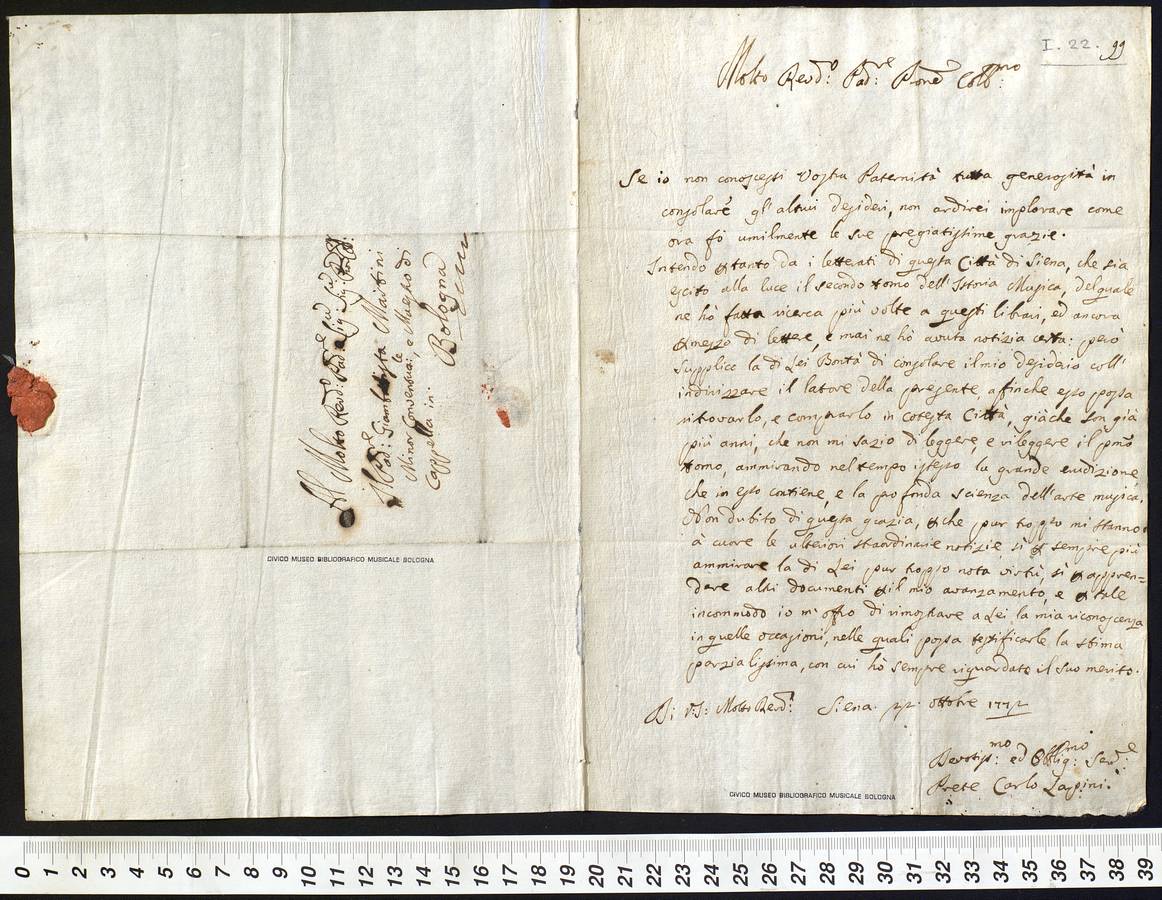 Al Molto Revd:o Pad:re Sig: Sig: Pron Col:
Il Pad:re Giambattista Martini
Minor Convenuale: e Maestro di
Cappella in:
Bologna
CIVICO MUSEO BIBLIOGRAFICO MUSICALE BOLOGNA
I. 22. 99
Molto Revd:o Pad:re Prone Coll:mo
Se io non conoscessi Vostra Paternità tutta generosità in
consolare gl'altrui desideri, non ardirei implorare come
ora fò umilmente le sue pregiatissime grazie.
Intendo tanto da i letterati di questa Città di Siena, che sia
escito alla luce il secondo tomo dell'Istoria Musica, del quale
ne hò fatta ricerca più volte a questi librari, ed ancora
mezzo di lettere, e mai ne hò avuta notizia certa: però
supplico la di Lei Bontà di consolare il mio desiderio coll'
indirizzare il latore della presente affinche esso possa
ritrovarlo, e comprarlo in cotesta Città, giàche son già
più anni, che non mi sazio di leggere, e rileggere il pmo
tomo, ammirando nel tempo istesso la grande erudizione,
che in esso contiene, e la profonda scienza dell'arte musica.
Non dubito di questa grazia, che pur troppo mi stanno
à cuore le ulteriori straordinarie notizie sì sempre più
ammirare la di Lei pur troppo nota virtù, sì appren=
dere altri documenti il mio avanzamento, e tale
incommodo io m'offro di rimostrare a Lei la mia riconoscenza
in quelle occasioni, nelle quali possa testificarle la stima
parzialissima, con cui hò sempre riguardato il suo merito.
Di V:S: Molto Revd: Siena 22 ottobre 1772
Devotiss:mo ed Obblig:mo Serv:e
Prete Carlo Lappini.
CIVICO MUSEO BIBLIOGRAFICO MUSICALE BOLOGNA
0 1 2 3 4 5 6 7 8 9 10 11 12 13 14 15 16 17 18 19 20 21 22 23 24 25 26 27 28 29 30 31 32 33 34 35 36 37 38 39